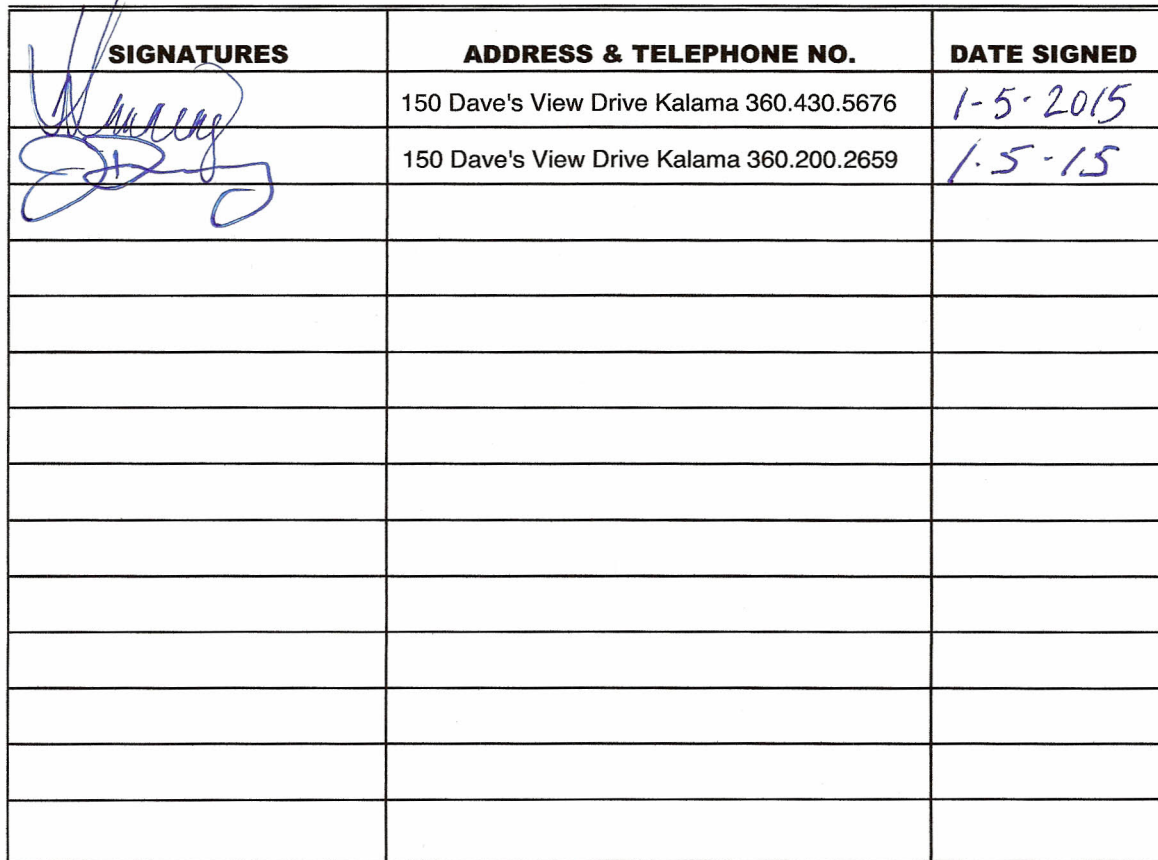 SIGNATURES ADDRESS & TELEPHONE NO. DATE SIGNED
150 Dave's View Drive Kalama 360.430.5676 1-5-2015
150 Dave's View Drive Kalama 360.200.2659 1-5-15